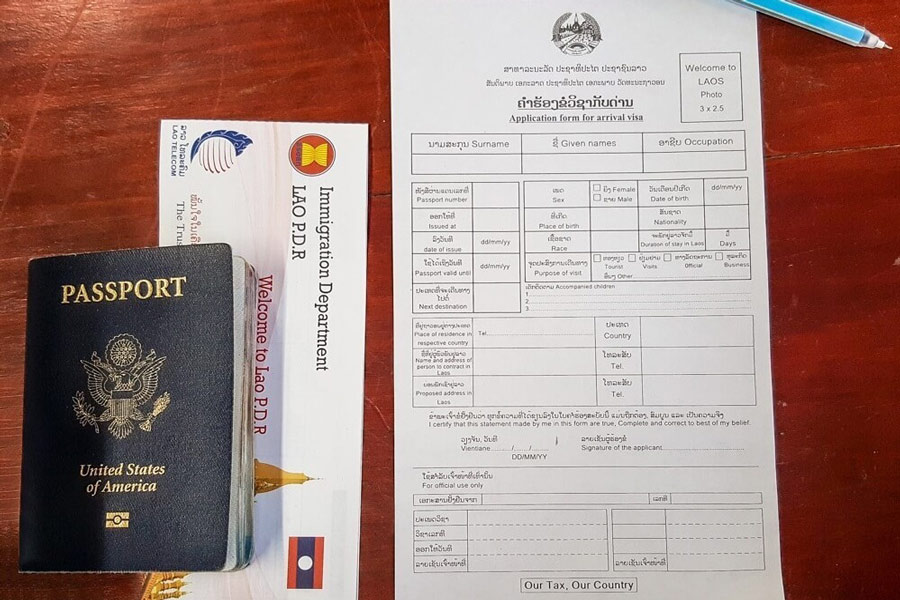 PASSPORT
United States
of America
ລາວ ໂທລະຄົມ
LAO TELECOM
The Trus
Immigration Department
LAO P.D.R
Welcome to Lao P.D.R
ສາທາລະນະລັດ ປະຊາທິປະໄຕ ປະຊາຊົນລາວ
ສັນຕິພາບ ເອກະລາດ ປະຊາທິປະໄຕ ເອກະພາບ ວັດທະນະຖາວອນ
ຄຳຮ້ອງຂໍວີຊາກັບດ່ານ
Application form for arrival visa
Welcome to
LAOS
Photo
3 x 2.5
ນາມສະກຸນ Surname
ຊື່ Given names
ອາຊີບ Occupation
ໜັງສືຜ່ານແດນເລກທີ
Passport number
ອອກໃຫ້ທີ່
Issued at
ລົງວັນທີ
date of issue
dd/mm/yy
ໃຊ້ໄດ້ເຖິງວັນທີ
Passport valid until
dd/mm/yy
ປະເທດທີ່ຈະເດີນທາງ
ໄປຕໍ່
Next destination
ເພດ
Sex
ຍິງ Female
ຊາຍ Male
ວັນເດືອນປີເກີດ
Date of birth
dd/mm/yy
ທີ່ເກີດ
Place of birth
ສັນຊາດ
Nationality
ເຊື້ອຊາດ
Race
ຈະພັກຢູ່ລາວຈັກມື້
Duration of stay in Laos
ມື້
Days
ຈຸດປະສົງການເດີນທາງ
Purpose of visit
ທ່ອງທ່ຽວ
Tourist
ຢ້ຽມຢາມ
Visits
ທາງລັດຖະການ
Official
ທຸລະກິດ
Business
ອື່ນໆ Other
ເດັກຕິດຕາມ Accompanied children
1
2
3
ທີ່ຢູ່ຖາວອນຢູ່ຕ່າງປະເທດ
Place of residence in
respective country
Tel
ປະເທດ
Country
Name and address of
person to contract in
Laos
ໂທລະສັບ
Tel.
ບ່ອນພັກເຊົາຢູ່ລາວ
Proposed address in
Laos
ໂທລະສັບ
Tel.
ຂ້າພະເຈົ້າຂໍຢັ້ງຢືນວ່າ ທຸກຂໍ້ຄວາມທີ່ໄດ້ຂຽນລົງໃນໃບຄຳຮ້ອງສະບັບນີ້ ແມ່ນຖືກຕ້ອງ, ສົມບູນ ແລະ ເປັນຄວາມຈິງ
I certify that this statement made by me in this form are true, Complete and correct to best of my belief.
ວຽງຈັນ, ວັນທີ
Vientiane....../....../......
DD/MM/YY
ລາຍເຊັນຜູ້ຮ້ອງຂໍ
Signature of the applicant
ໃຊ້ສຳລັບເຈົ້າໜ້າທີ່ເທົ່ານັ້ນ
For official use only
ເອກະສານຢັ້ງຢືນຈາກ
ເລກທີ
ປະເພດວີຊາ
ວີຊາເລກທີ
ອອກໃຫ້ວັນທີ
ລາຍເຊັນເຈົ້າໜ້າທີ່
ລາຍເຊັນເຈົ້າໜ້າທີ່
Our Tax, Our Country